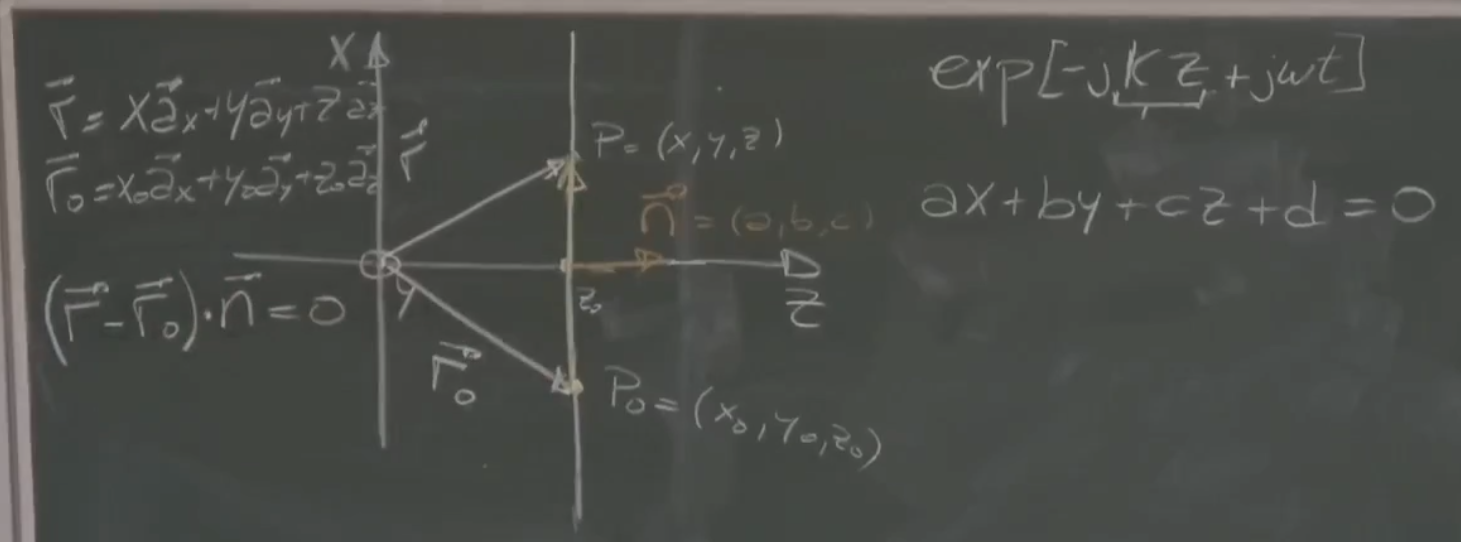 X
r⃗ = Xa⃗x+Ya⃗y+Za⃗z
r⃗₀=X₀a⃗x+Y₀a⃗y+Z₀a⃗z
(r⃗-r⃗₀)·n⃗=0
r⃗
P=(x,y,z)
n⃗=(a,b,c)
y
z₀
Z
r⃗₀
P₀=(x₀,y₀,z₀)
exp[-jKZ+jwt]
ax+by+cz+d=0